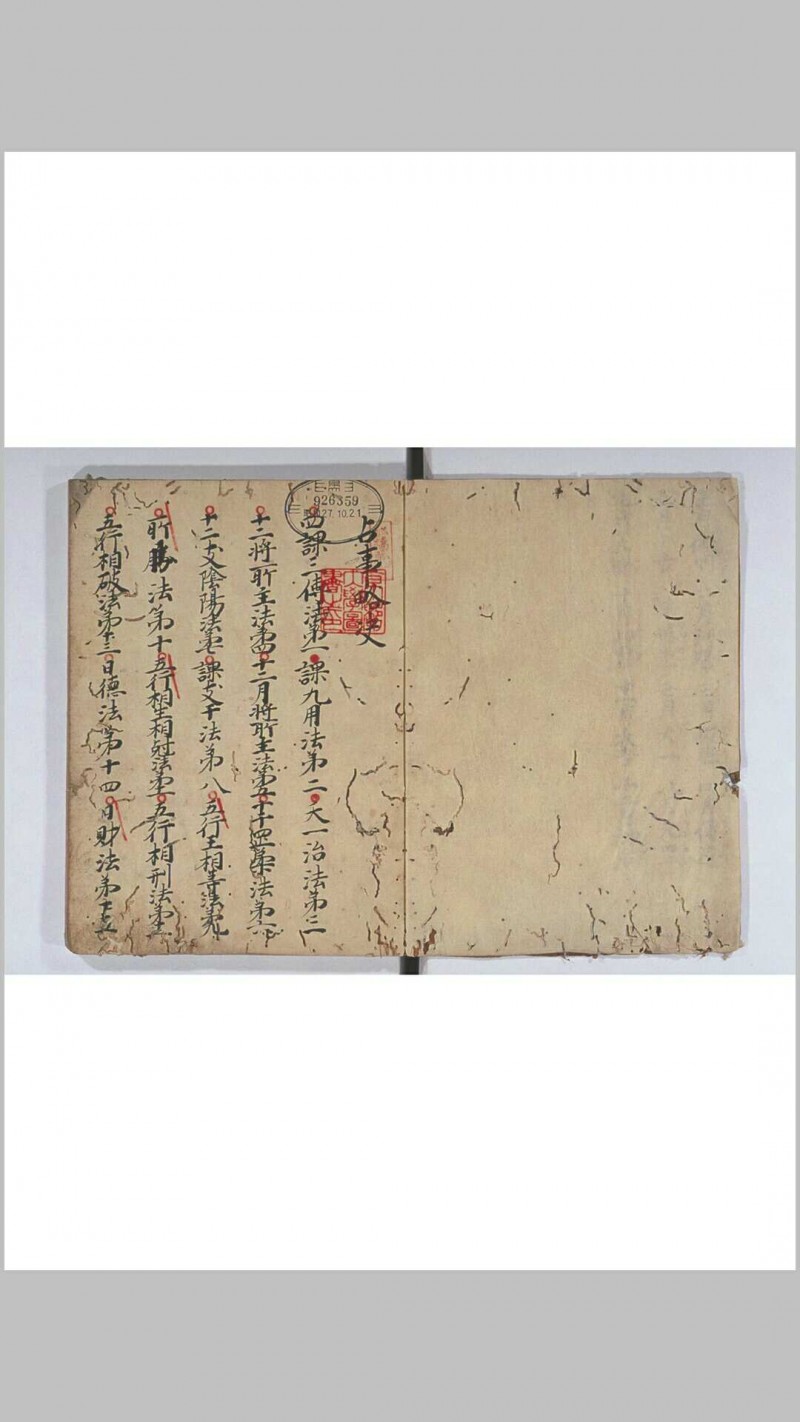 占事略决
四課三傳法第一課九用法第二天一治法第三
十二將所主法第四十二月將所主法第五十干罡柔法第六
十二支陰陽法第七課支干法第八五行王相等法第九
所勝法第十五行相生相尅法第十一五行相刑法第十二
五行相破法第十三日德法第十四日財法第十五
926359
27.10.21